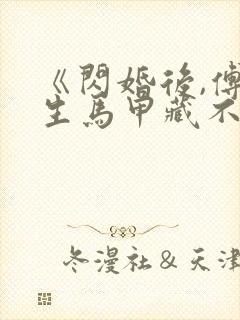 《閃婚後,傅
生馬甲藏不
冬漫社＆天津